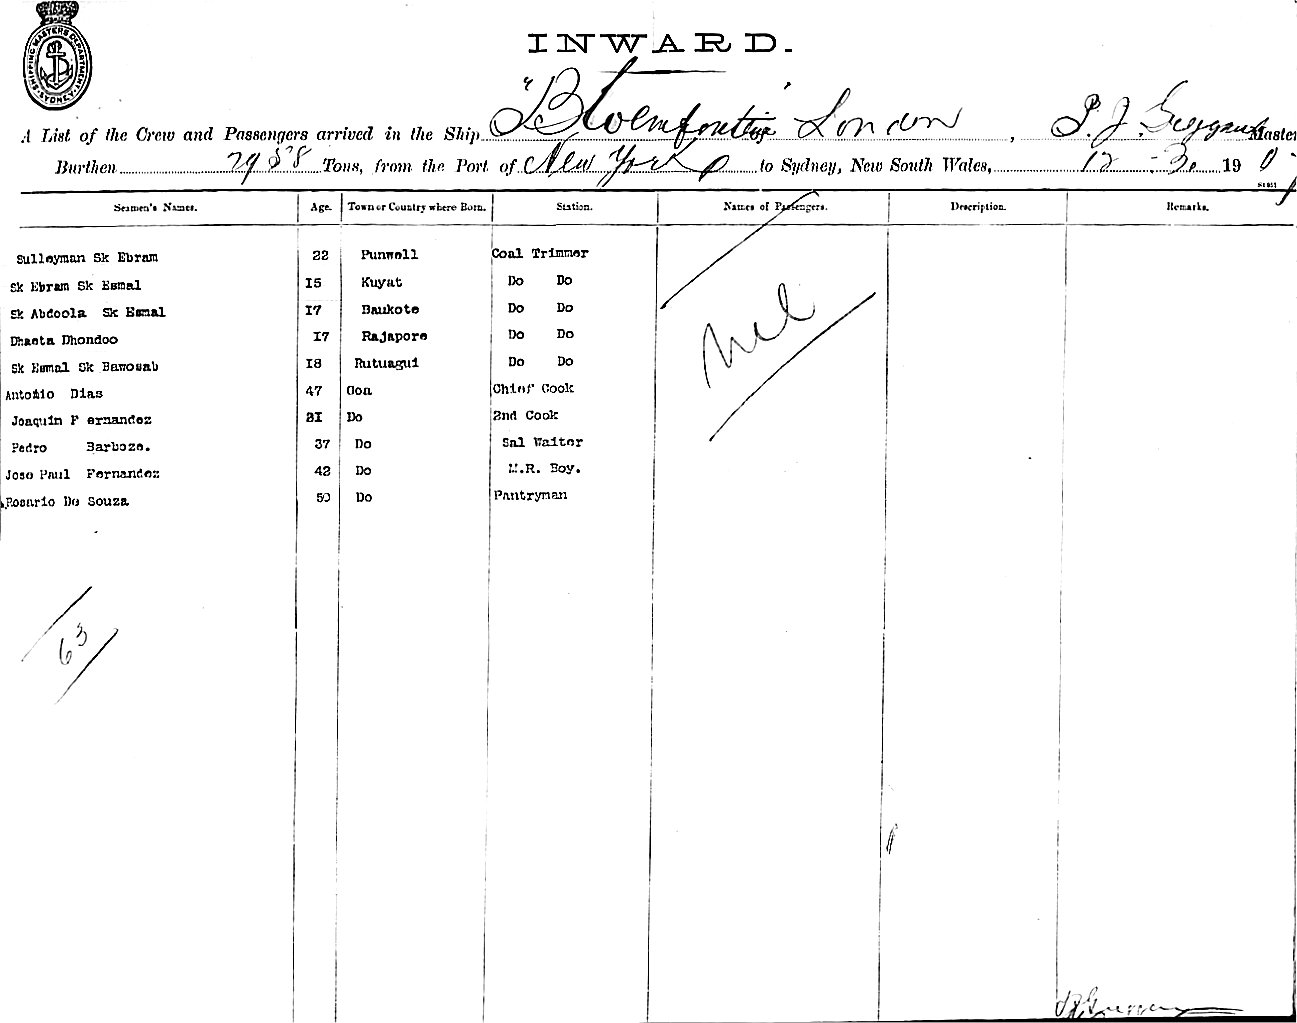 SHIPPING MASTERS DEPARTMENT SYDNEY
INWARD.
A List of the Crew and Passengers arrived in the Ship "Bloemfontein" London, P. J. Master
Burthen 2958 Tons, from the Port of New York to Sydney, New South Wales, 12 - 3 190
Seamen's Names. Age. Town or Country where Born. Station. Names of Passengers. Description. Remarks.
Sulleyman Sk Ebram 22 Punwell Coal Trimmer
Sk Ebram Sk Esmal I5 Kuyat Do Do
Sk Abdoola Sk Esmal I7 Baukote Do Do
Dhaeta Dhondoo I7 Rajapore Do Do
Sk Esmal Sk Bawosab I8 Rutuagui Do Do
Antonio Dias 47 Goa Chief Cook
Joaquin F ernandez 2I Do 2nd Cook
Pedro Barboze. 37 Do Sal Waiter
Jose Paul Fernandez 42 Do M.R. Boy.
Rosario De Souza 50 Do Pantryman
nil
63